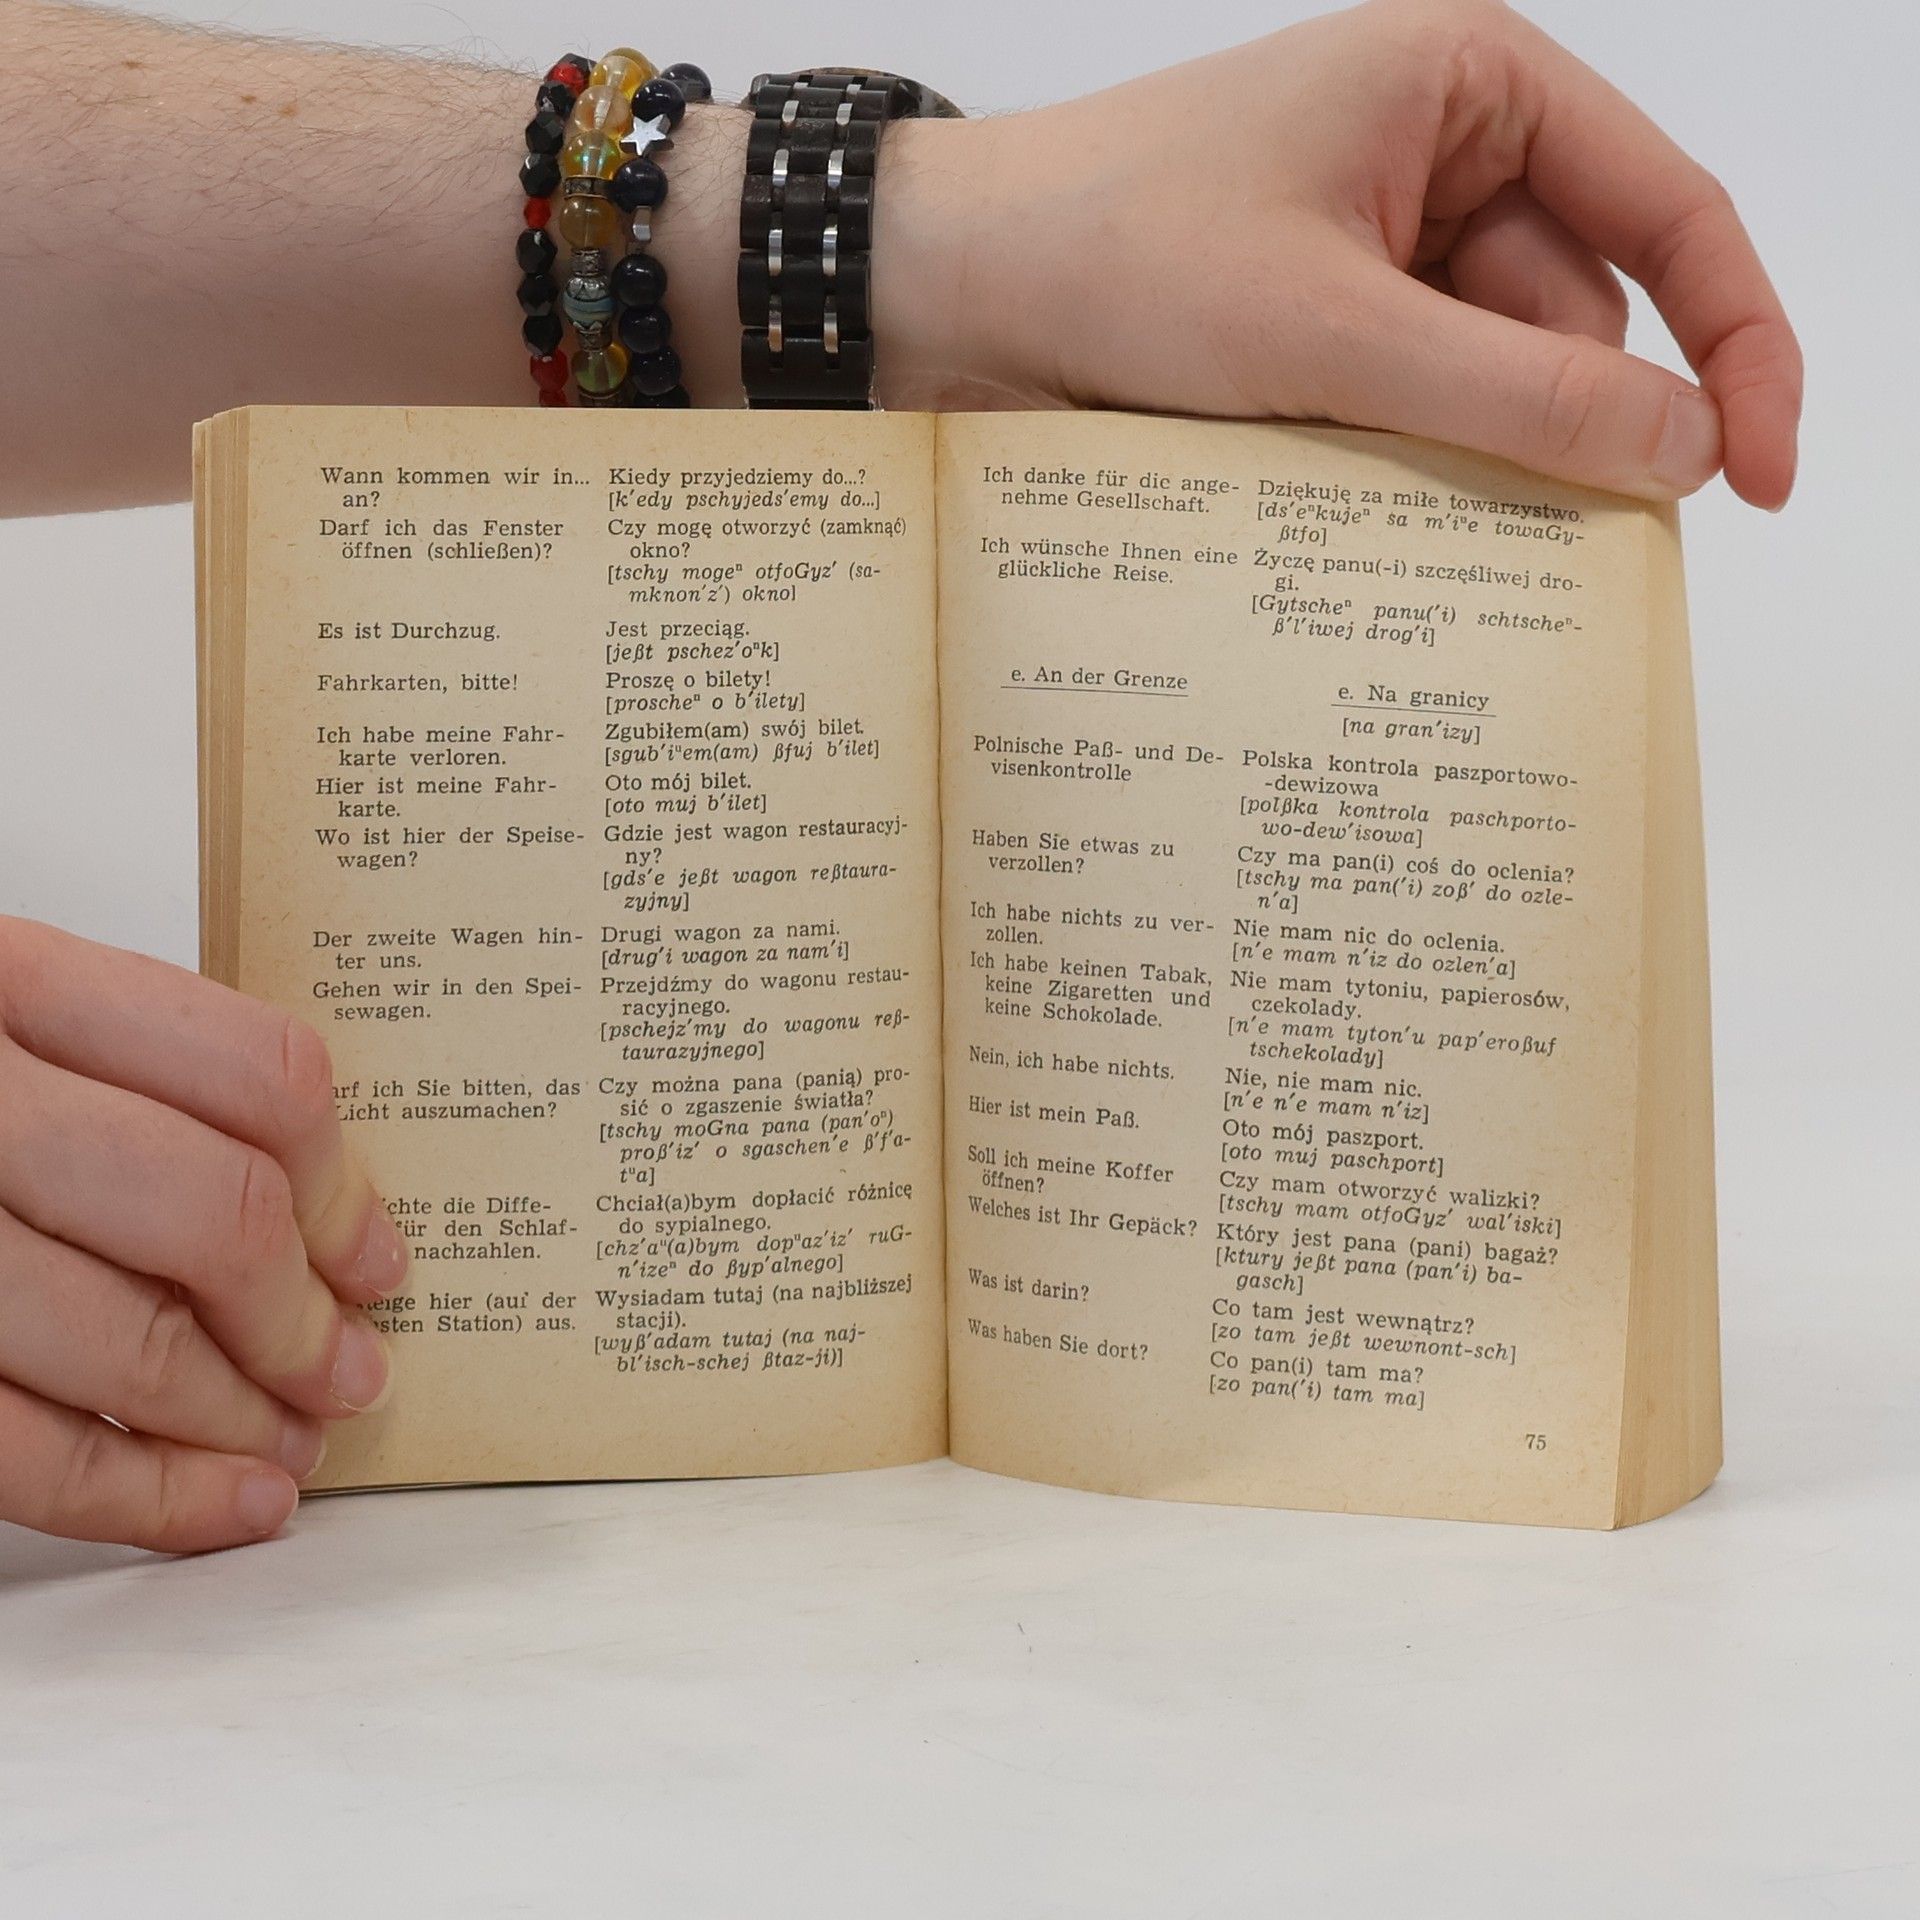 Wann kommen wir in...
an?
Darf ich das Fenster
öffnen (schließen)?
Es ist Durchzug.
Fahrkarten, bitte!
Ich habe meine Fahr-
karte verloren.
Hier ist meine Fahr-
karte.
Wo ist hier der Speise-
wagen?
Der zweite Wagen hin-
ter uns.
Gehen wir in den Spei-
sewagen.
ich Sie bitten, das
Licht auszumachen?
die Diffe-
für den Schlaf-
nachzahlen.
hier (auf der
Station) aus.
Kiedy przyjedziemy do...?
[k'edy pschyjeds'emy do...]
Czy mogę otworzyć (zamknąć)
okno?
[tschy mogeⁿ otfoGyz' (sa-
mknon'z') okno]
Jest przeciąg.
[jeßt pschez'oⁿk]
Proszę o bilety!
[proscheⁿ o b'ilety]
Zgubiłem(am) swój bilet.
[sgub'iᵘem(am) ßfuj b'ilet]
Oto mój bilet.
[oto muj b'ilet]
Gdzie jest wagon restauracyj-
ny?
[gds'e jeßt wagon reßtaura-
zyjny]
Drugi wagon za nami.
[drug'i wagon za nam'i]
Przejdźmy do wagonu restau-
racyjnego.
[pschejz'my do wagonu reß-
taurazyjnego]
Czy można pana (panią) pro-
sić o zgaszenie światła?
[tschy moGna pana (pan'oⁿ)
proß'iz' o sgaschen'e ß'f'a-
tᵘa]
Chciał(a)bym dopłacić różnicę
do sypialnego.
[chz'aᵘ(a)bym dopᵘaz'iz' ruG-
n'izeⁿ do ßyp'alnego]
Wysiadam tutaj (na najbliższej
stacji).
[wyß'adam tutaj (na naj-
bl'isch-schej ßtaz-ji)]
Ich danke für die ange-
nehme Gesellschaft.
Ich wünsche Ihnen eine
glückliche Reise.
Dziękuję za miłe towarzystwo.
[ds'eⁿkujeⁿ sa m'iᵘe towaGy-
ßtfo]
Życzę panu(-i) szczęśliwej dro-
gi.
[Gytscheⁿ panu('i) schtscheⁿ-
ß'l'iwej drog'i]
e. An der Grenze
e. Na granicy
[na gran'izy]
Polnische Paß- und De-
visenkontrolle
Haben Sie etwas zu
verzollen?
Ich habe nichts zu ver-
zollen.
Ich habe keinen Tabak,
keine Zigaretten und
keine Schokolade.
Nein, ich habe nichts.
Hier ist mein Paß.
Soll ich meine Koffer
öffnen?
Welches ist Ihr Gepäck?
Was ist darin?
Was haben Sie dort?
Polska kontrola paszportowo-
-dewizowa
[polßka kontrola paschporto-
wo-dew'isowa]
Czy ma pan(i) coś do oclenia?
[tschy ma pan('i) zoß' do ozle-
n'a]
Nie mam nic do oclenia.
[n'e mam n'iz do ozlen'a]
Nie mam tytoniu, papierosów,
czekolady.
[n'e mam tyton'u pap'eroßuf
tschekolady]
Nie, nie mam nic.
[n'e n'e mam n'iz]
Oto mój paszport.
[oto muj paschport]
Czy mam otworzyć walizki?
[tschy mam otfoGyz' wal'iski]
Który jest pana (pani) bagaż?
[ktury jeßt pana (pan'i) ba-
gasch]
Co tam jest wewnątrz?
[zo tam jeßt wewnont-sch]
Co pan(i) tam ma?
[zo pan('i) tam ma]
75